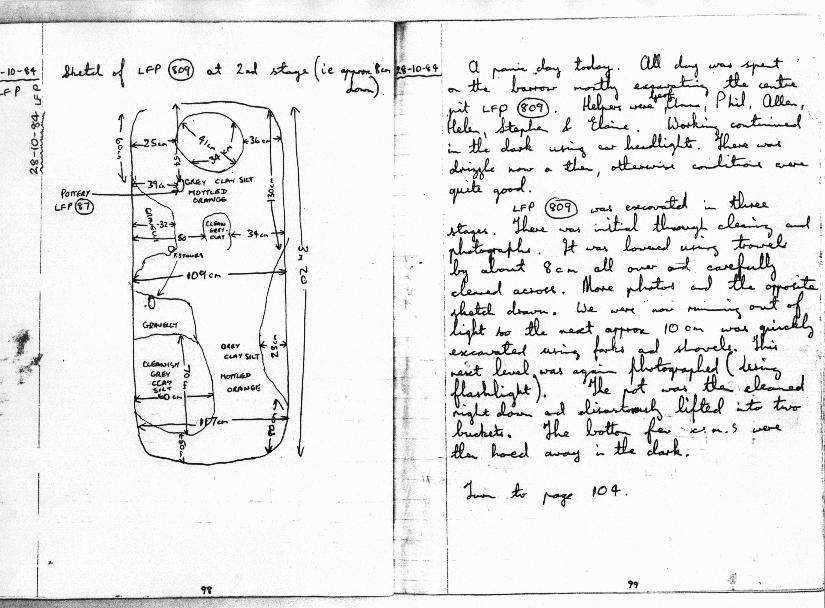 -10-84
FP
28-10-84 LFP
Sketch of LFP 809 at 2nd stage (ie approx 8cm
down)
60cm
25cm
41cm
34cm
36cm
130cm
39cm
GREY CLAY SILT
MOTTLED
ORANGE
POTTERY
LFP 87
GRAVELLY
32
50
CLEAN
GREY
CLAY
34cm
3m 20
STONES
109cm
GRAVELLY
GREY
CLAY SILT
MOTTLED
ORANGE
23cm
CLEANISH
GREY
CLAY
SILT
70cm
60cm
117cm
98
28-10-84
A panic day today. All day was spent
on the barrow mostly excavating the centre
pit LFP 809. Helpers were Anna, Phil, Allen,
Helen, Stephen & Elaine. Working continued
in the dark using car headlights. There was
drizzle now & then, otherwise conditions were
quite good.
LFP 809 was excavated in three
stages. There was initial through cleaning and
photographs. It was lowered using trowels
by about 8cm all over and carefully
cleaned across. More photos and the opposite
sketch drawn. We were now running out of
light so the next approx 10 cm was quickly
excavated using forks and shovels. This
next level was again photographed (using
flashlight). The pot was then cleaned
right down and disastrously lifted into two
buckets. The bottom few c.m.s were
then hoed away in the dark.
Turn to page 104.
99